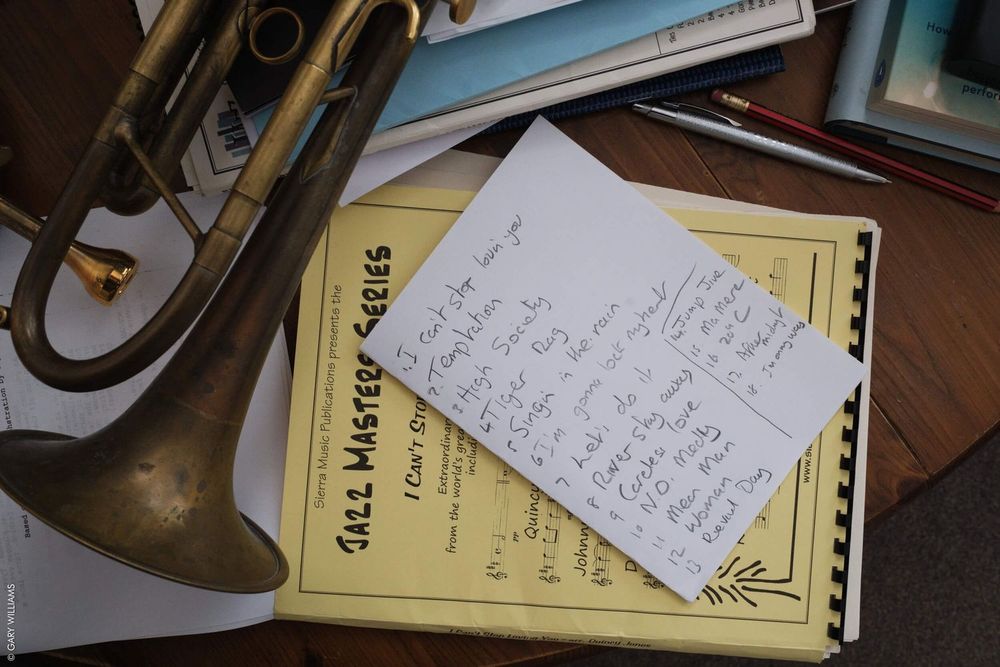 1. I can't stop lovin you
2. Temptation
3. High Society
4 Tiger Rag
5 Singin in the rain
6 I'm gonna lock my heart
7 Let's do it
8 River stay away
9 Careless love
10 N.O. Medly
11 Mean Man
12 Woman Man
13 Revival Day
14. Jump Jive
15 Ma Mere
16 2019 C
17. After midnight
18. Im on my way
Sierra Music Publications presents the
JAZZ MASTERS SERIES
I CAN'T STO
Extraordinar
from the world's grea
includi
Quinc
Johnn
D
www.su
I Can't Stop Loving You - arr. Quincy Jones
How
perfor
Based
© GARY WILLIAMS